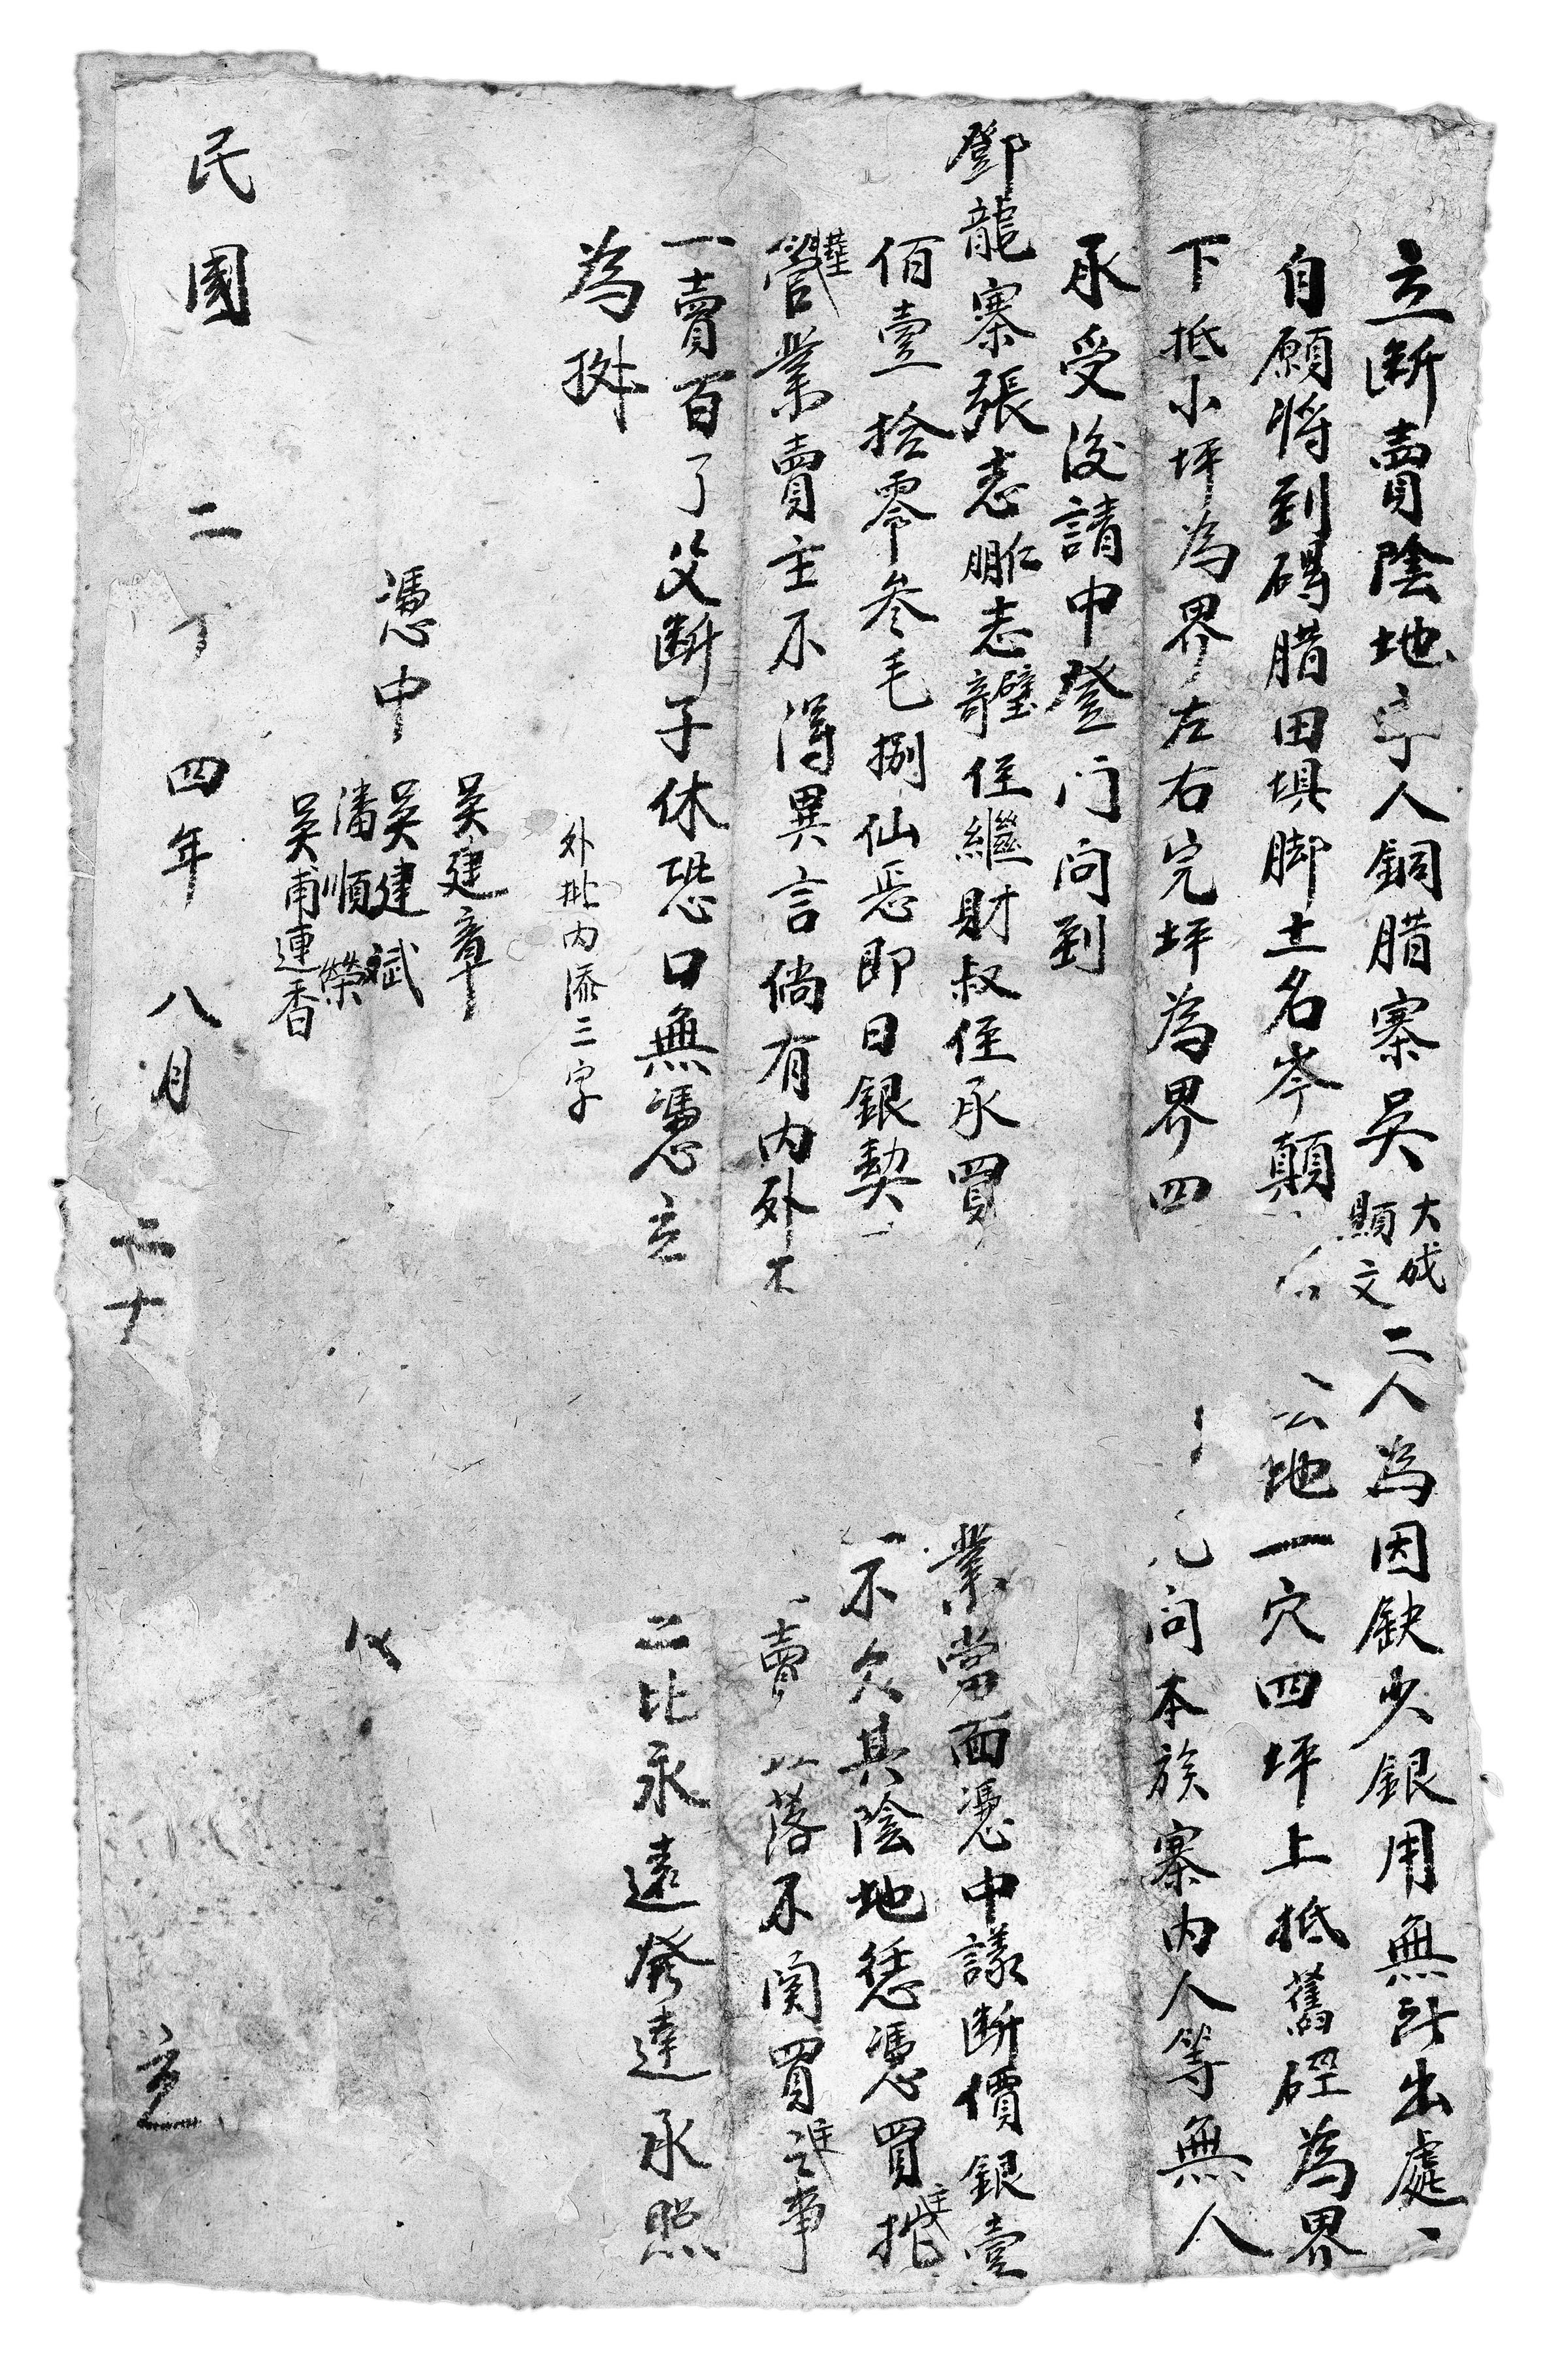 立断賣陰地字人銅腊寨吳大成顯文二人為因缺少銀用無所出處
自願將到碍腊田垻脚土名岑顛 公地一穴四坪上抵舊硿為界
下抵小坪為界左右完坪為界四 問本族寨内人等無人
承受後請中登门问到
鄧龍寨張志仁鵬志璧龍侄繼財叔侄承買 業當面憑中議断價銀壹
佰壹拾零叁毛捌仙恁即日銀契 不欠其陰地恁憑買主挖
葬管業賣主不得異言倘有内外不 賣 落不関買主之事
一賣百了父断子休恐口無憑立 二比永遠發達承照
為拠
外批内添三字
吳建章
憑中 吳建斌
潘順榮
吳甫連香
民國二丁四年八月二十 立